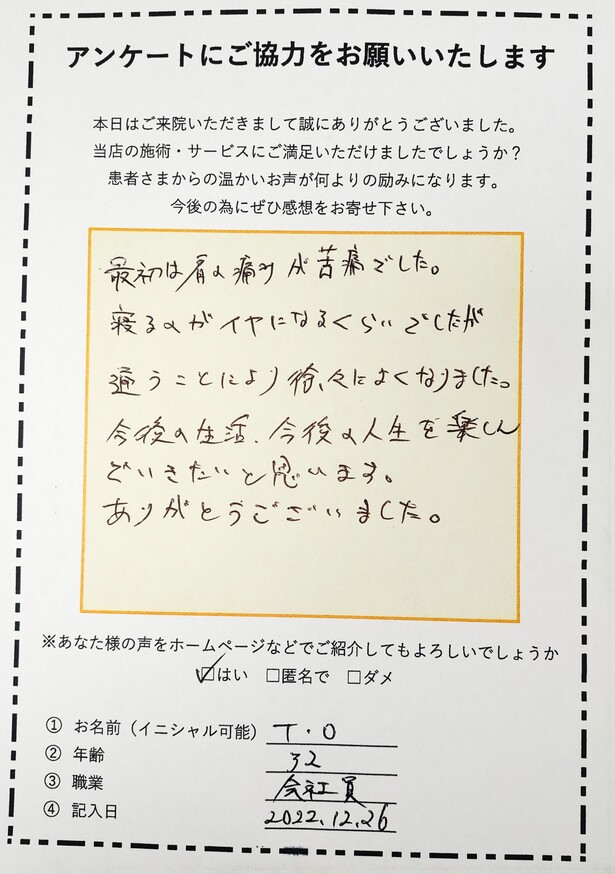 アンケートにご協力をお願いいたします
本日はご来院いただきまして誠にありがとうございました。
当店の施術・サービスにご満足いただけましたでしょうか？
患者さまからの温かいお声が何よりの励みになります。
今後の為にぜひ感想をお寄せ下さい。
最初は肩の痛みが苦痛でした。
寝るのがイヤになるくらいでしたが
通うことにより徐々によくなりました。
今後の生活、今後の人生を楽しん
でいきたいと思います。
ありがとうございました。
※あなた様の声をホームページなどでご紹介してもよろしいでしょうか
☑はい □匿名で □ダメ
① お名前（イニシャル可能） T・O
② 年齢 32
③ 職業 会社員
④ 記入日 2022.12.26